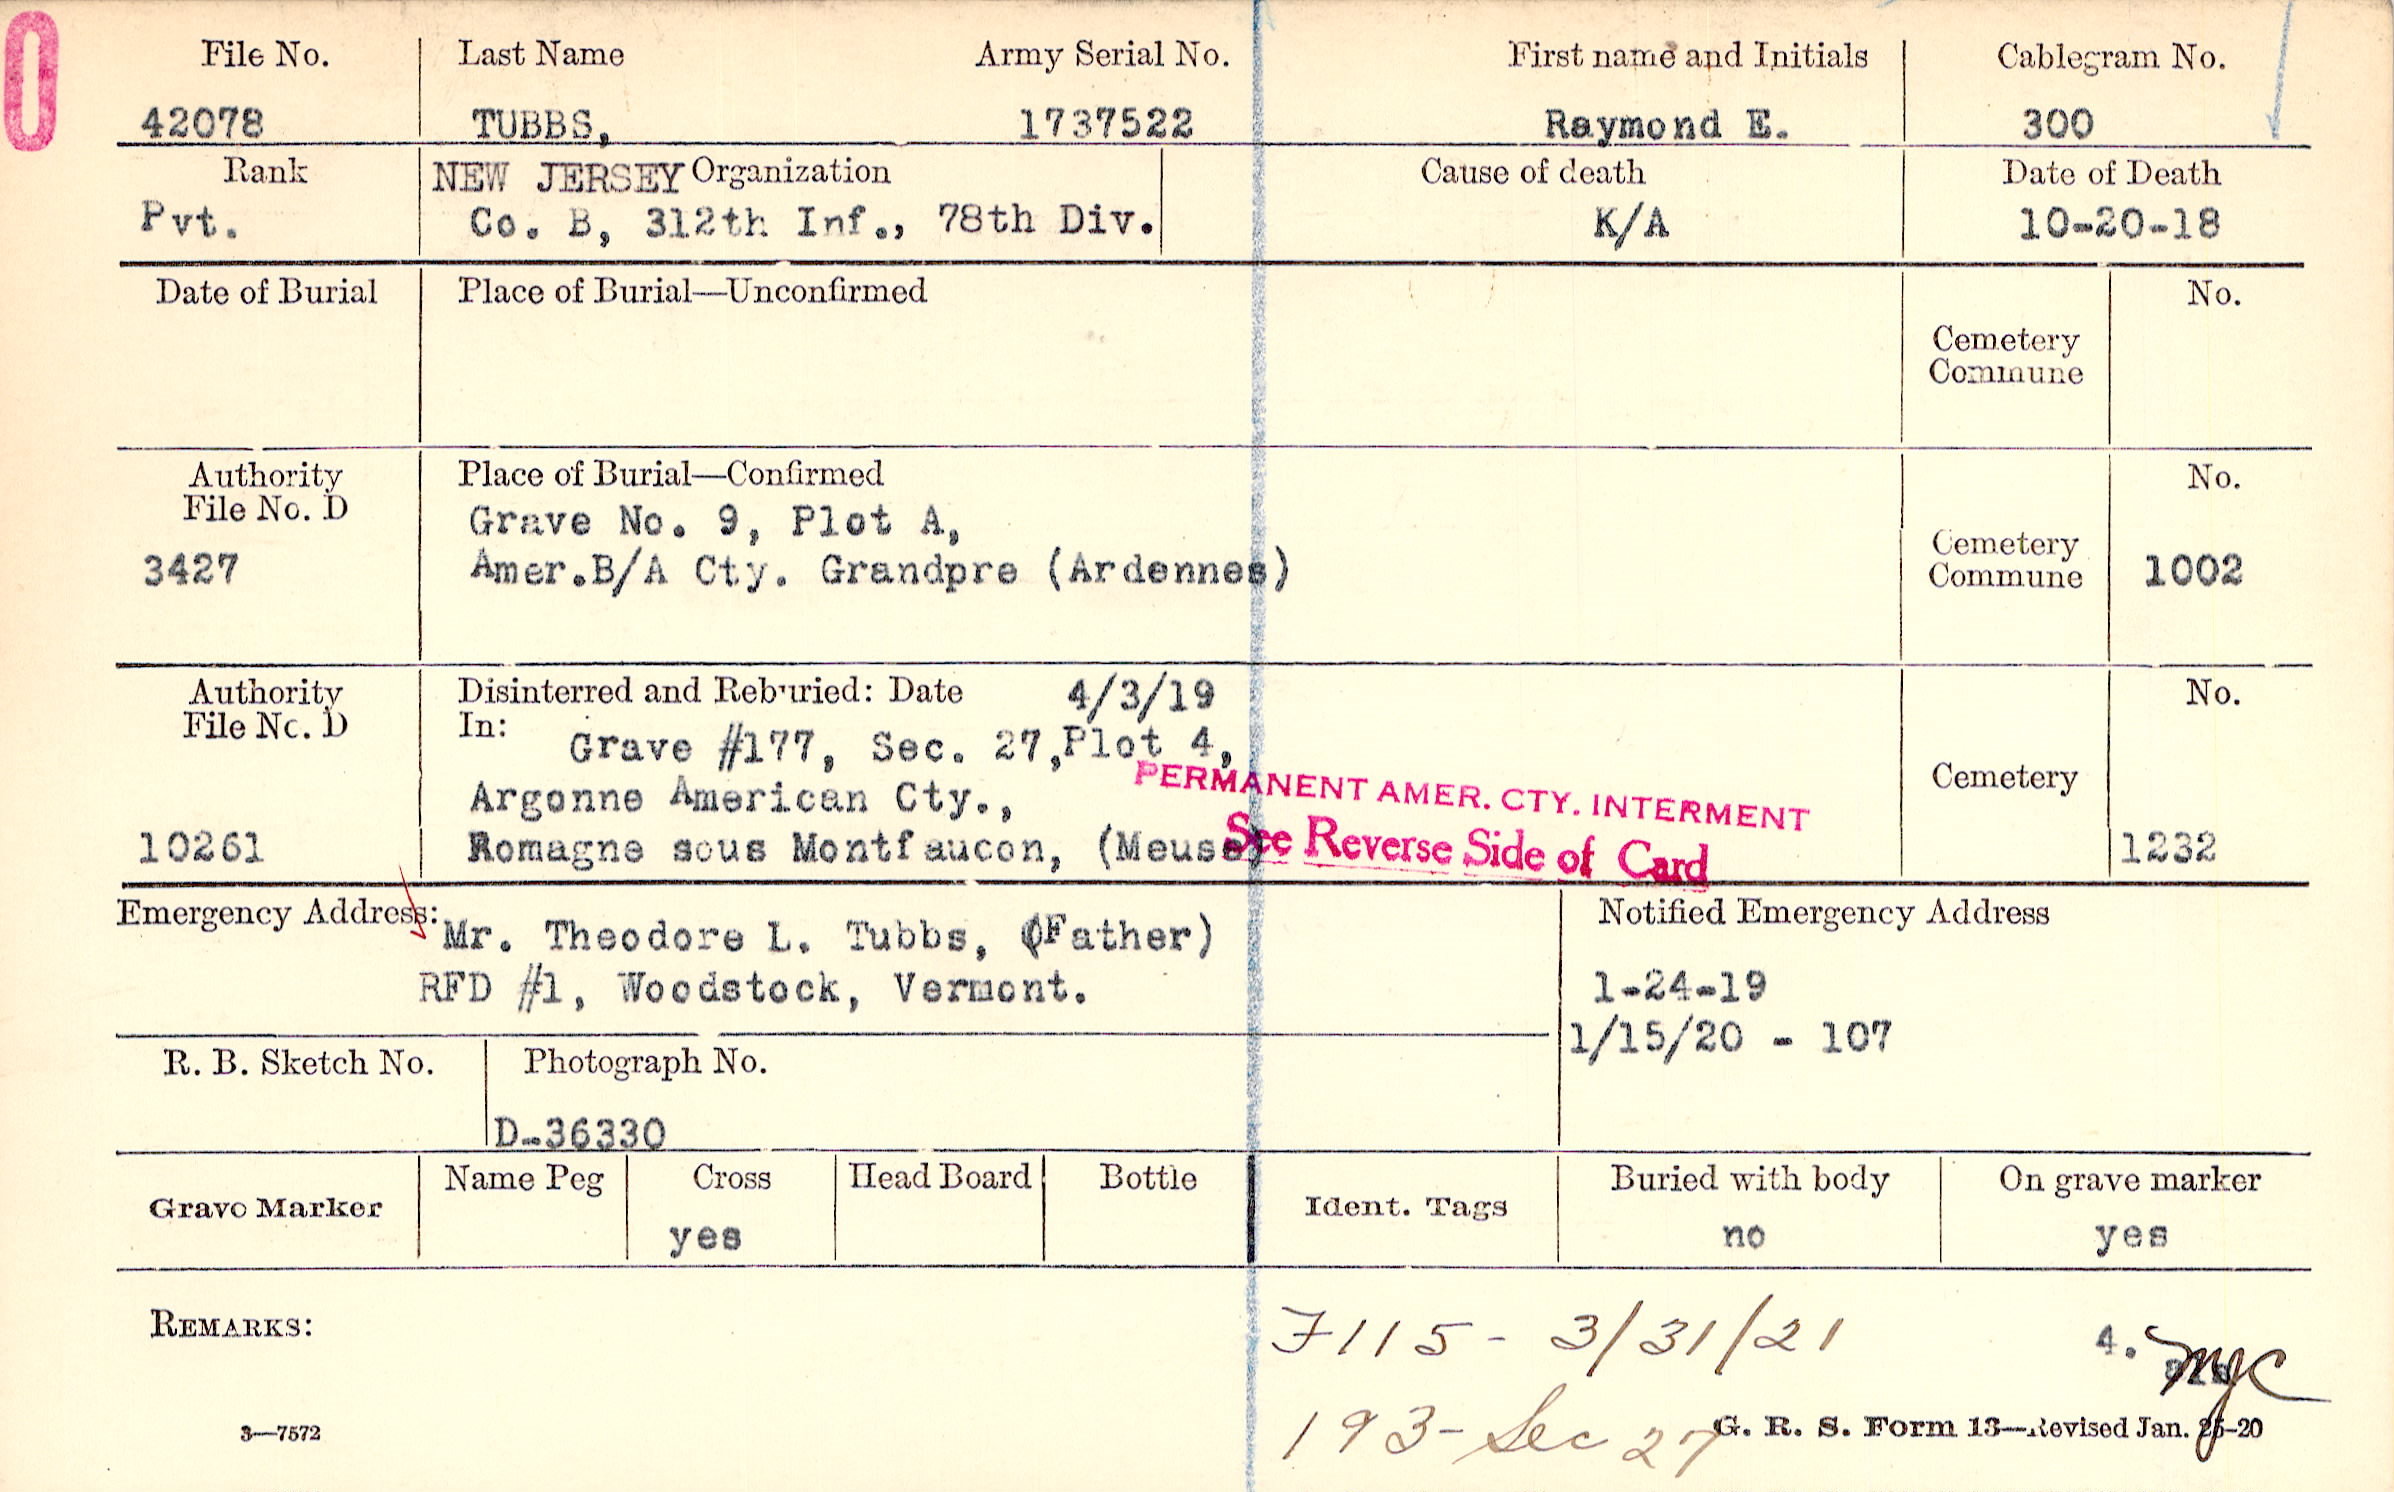 0
File No. Last Name Army Serial No. First name and Initials Cablegram No.
42078 TUBBS, 1737522 Raymond E. 300
Rank NEW JERSEY Organization Cause of death Date of Death
Pvt. Co. B, 312th Inf., 78th Div. K/A 10-20-18
Date of Burial Place of Burial—Unconfirmed No.
Cemetery
Commune
Authority Place of Burial—Confirmed No.
File No. D Grave No. 9, Plot A,
Cemetery
3427 Amer.B/A Cty. Grandpre (Ardennes) Commune 1002
Authority Disinterred and Reburied: Date 4/3/19 No.
File No. D In: Grave #177, Sec. 27, Plot 4,
PERMANENT AMER. CTY. INTERMENT
Argonne American Cty., Cemetery
10261 Romagne sous Montfaucon, (Meuse) See Reverse Side of Card 1232
Emergency Address: Mr. Theodore L. Tubbs, (Father) Notified Emergency Address
RFD #1, Woodstock, Vermont. 1-24-19
1/15/20 - 107
R. B. Sketch No. Photograph No.
D-36330
Grave Marker Name Peg Cross Head Board Bottle Ident. Tags Buried with body On grave marker
yes no yes
REMARKS: F115- 3/31/21 4.
193- Sec 27
3—7572 G. R. S. Form 13—Revised Jan. 25-20